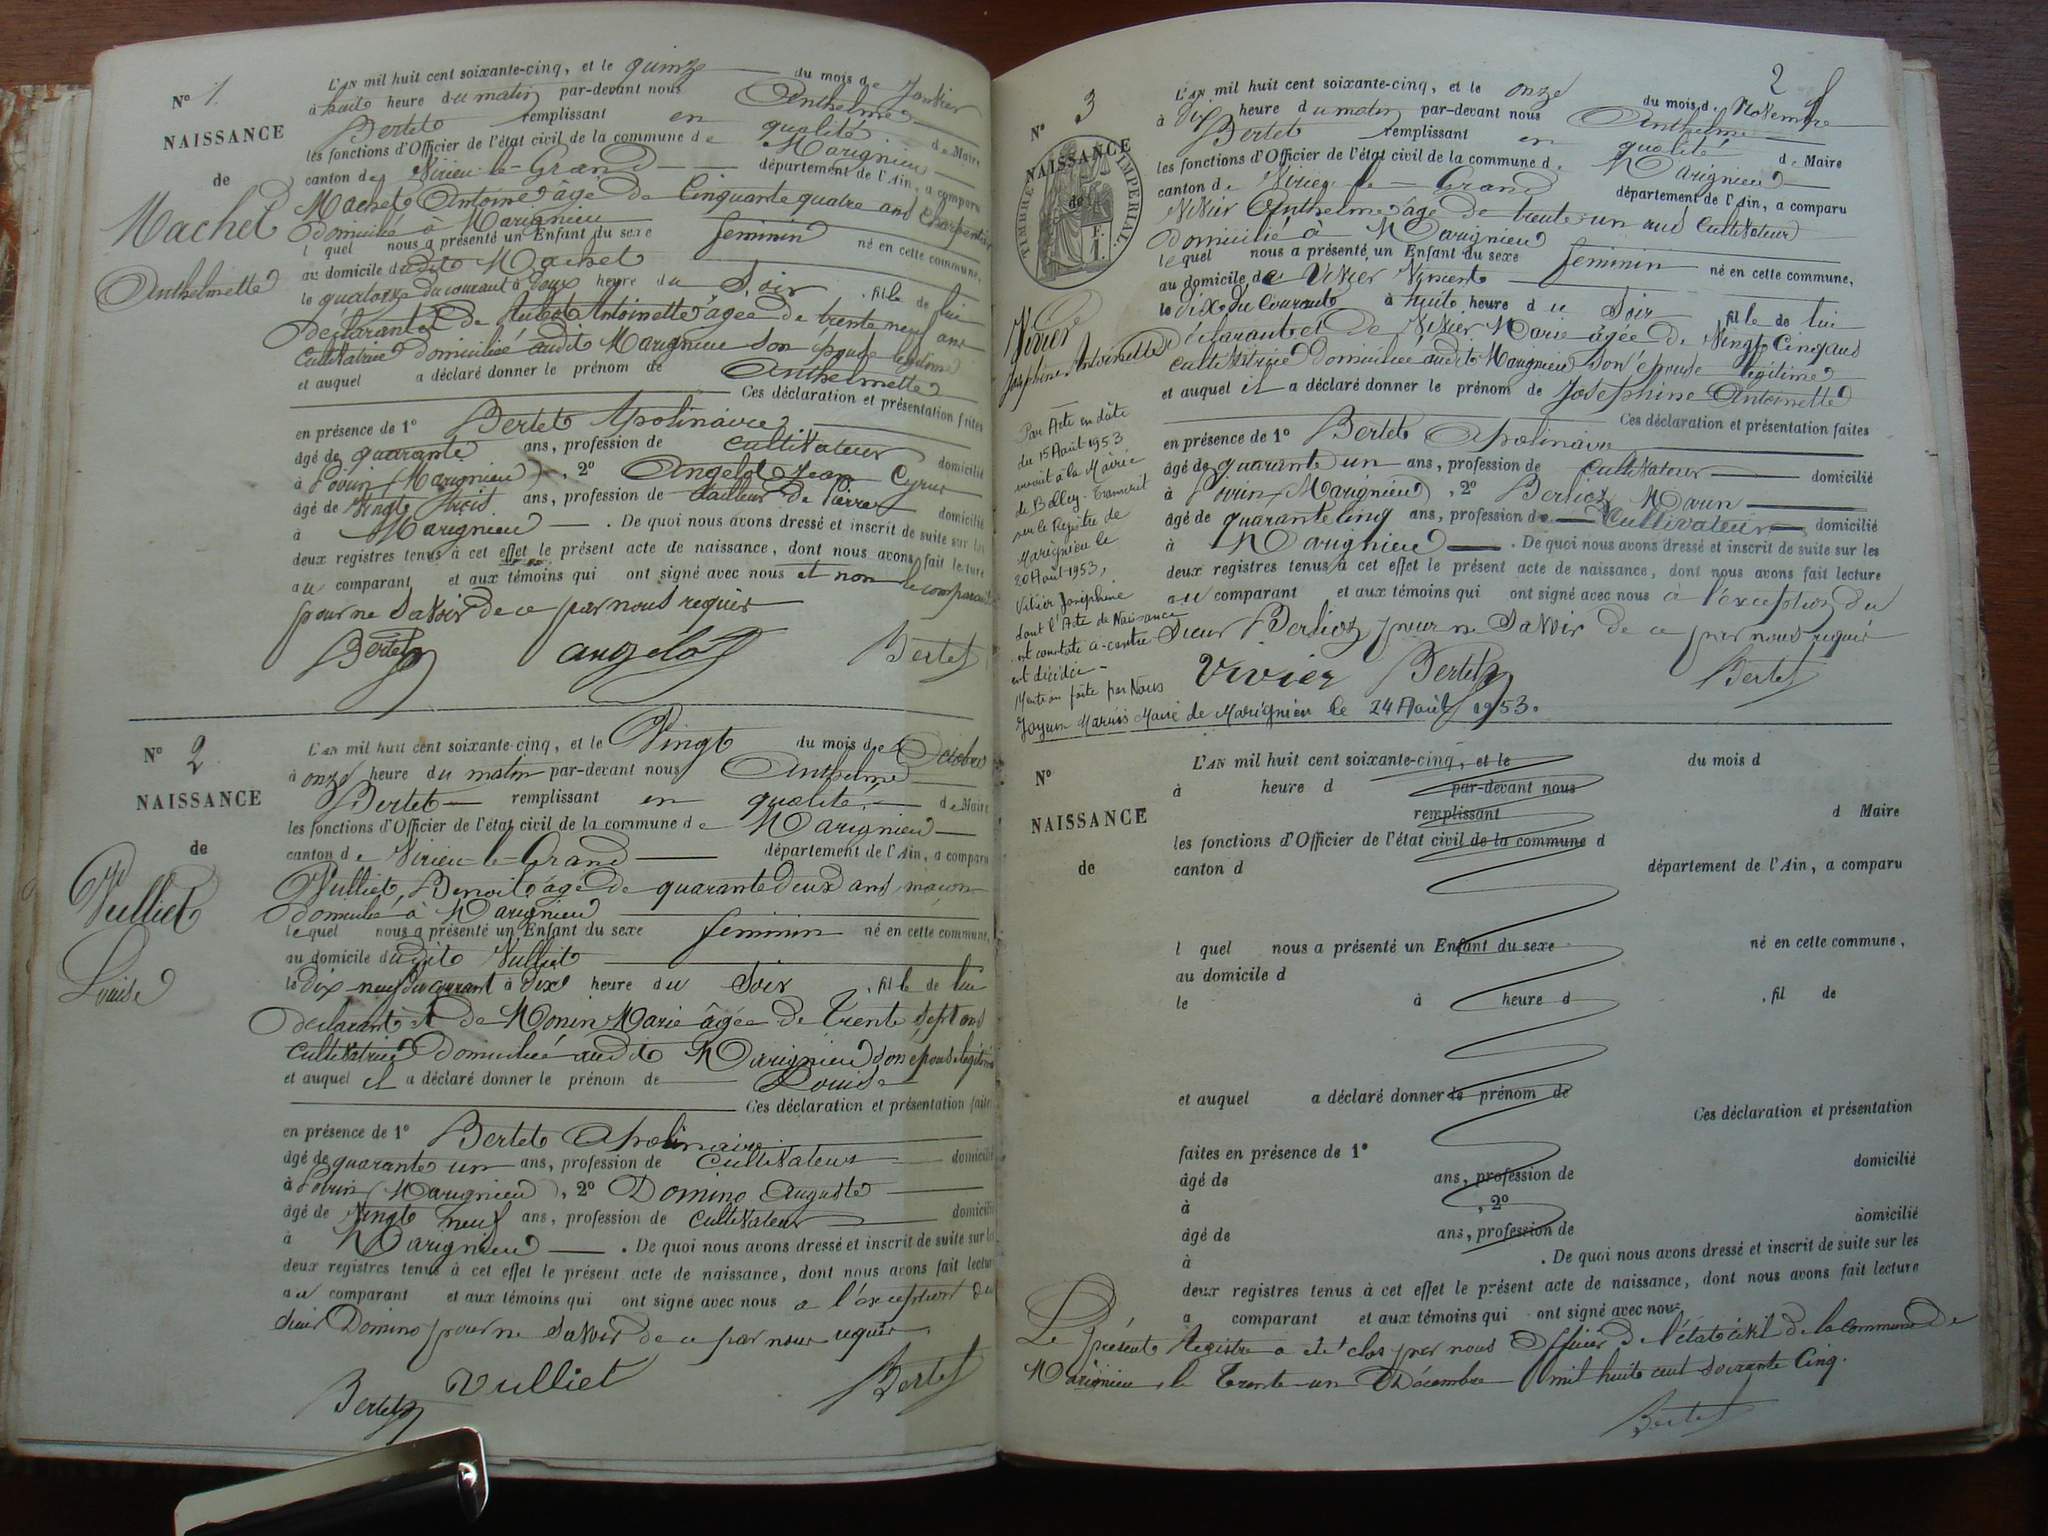 N° 1.
NAISSANCE
de
Machet
Anthelmette
L'AN mil huit cent soixante-cinq, et le quinze du mois de Janvier
à huit heure du matin par-devant nous Anthelme
Bertet remplissant en qualité de Maire
les fonctions d'Officier de l'état civil de la commune de Marignieu
canton de Virieu-le-Grand département de l'Ain, a comparu
Machet Antoine âgé de Cinquante quatre ans Charpentier
domicilié à Marignieu
lequel nous a présenté un Enfant du sexe feminin né en cette commune,
au domicile dudit Machet
le quatorze du courant à deux heure du Soir, fille de lui
déclarant et de Antoinette âgée de trente neuf ans
Cultivatrice domiciliée audit Marignieu son épouse légitime
et auquel a déclaré donner le prénom de Anthelmette
Ces déclaration et présentation faites
en présence de 1° Bertet Apolinaire
âgé de quarante ans, profession de Cultivateur domicilié
à Poirin (Marignieu), 2° Angelot Jean Cyrus
âgé de Vingt trois ans, profession de tailleur de Pierre domicilié
à Marignieu. De quoi nous avons dressé et inscrit de suite sur les
deux registres tenus à cet effet le présent acte de naissance, dont nous avons fait lecture
au comparant et aux témoins qui ont signé avec nous et non le comparant
pour ne Savoir de ce par nous requis
Bertet angelot Bertet
N° 2
NAISSANCE
de
Vulliet
Louise
L'AN mil huit cent soixante-cinq, et le Vingt du mois de Octobre
à onze heure du matin par-devant nous Anthelme
Bertet remplissant en qualité de Maire
les fonctions d'Officier de l'état civil de la commune de Marignieu
canton de Virieu-le-Grand département de l'Ain, a comparu
Vulliet Benoit âgé de quarante deux ans maçon
domicilié à Marignieu
lequel nous a présenté un Enfant du sexe feminin né en cette commune,
au domicile dudit Vulliet
le dix neuf du courant à dix heure du Soir, fille de lui
déclarant et de Monin Marie âgée de Trente Sept ans
Cultivatrice domiciliée audit Marignieu son épouse légitime
et auquel il a déclaré donner le prénom de Louise
Ces déclaration et présentation faites
en présence de 1° Bertet Apolinaire
âgé de quarante un ans, profession de Cultivateur domicilié
à Poirin (Marignieu), 2° Domino Auguste
âgé de Vingt neuf ans, profession de Cultivateur domicilié
à Marignieu. De quoi nous avons dressé et inscrit de suite sur les
deux registres tenus à cet effet le présent acte de naissance, dont nous avons fait lecture
au comparant et aux témoins qui ont signé avec nous a l'exception du
Sieur Domino pour ne Savoir de ce par nous requis
Bertet Vulliet Bertet
2
N° 3
NAISSANCE
de
TIMBRE IMPERIAL.
Vivier
Joséphine Antoinette
Par Acte en date
du 15 Août 1953
envoit à la Mairie
de Belley - Transcrit
sur le Registre de
Marignieu le
20 Août 1953,
Vivier Joséphine
dont l'Acte de Naissance
est constaté ci-contre
est décédée -
Mention faite par Nous
Joyeux Marius Maire de Marignieu le 24 Août 1953.
L'AN mil huit cent soixante-cinq, et le onze du mois de Novembre
à dix heure du matin par-devant nous Anthelme
Bertet remplissant en qualité de Maire
les fonctions d'Officier de l'état civil de la commune de Marignieu
canton de Virieu-le-Grand département de l'Ain, a comparu
Vivier Anthelme âgé de trente-un ans Cultivateur
domicilié à Marignieu
lequel nous a présenté un Enfant du sexe feminin né en cette commune,
au domicile de Vivier Vincent
le dix du Courant à huit heure du Soir fille de lui
déclarant et de Vivier Marie âgée de Vingt Cinq ans
Cultivatrice domiciliée audit Marignieu son épouse légitime
et auquel il a déclaré donner le prénom de Josephine Antoinette
Ces déclaration et présentation faites
en présence de 1° Bertet Apolinaire
âgé de quarante un ans, profession de Cultivateur domicilié
à Poirin (Marignieu), 2° Berlioz Marin
âgé de quarante cinq ans, profession de Cultivateur domicilié
à Marignieu. De quoi nous avons dressé et inscrit de suite sur les
deux registres tenus à cet effet le présent acte de naissance, dont nous avons fait lecture
au comparant et aux témoins qui ont signé avec nous a l'exception du
Sieur Berlioz pour ne Savoir de ce par nous requis
Vivier Bertet Bertet
N°
NAISSANCE
de
L'AN mil huit cent soixante-cinq, et le du mois d
à heure d par-devant nous
remplissant d Maire
les fonctions d'Officier de l'état civil de la commune d
canton d département de l'Ain, a comparu
l quel nous a présenté un Enfant du sexe né en cette commune,
au domicile d
le à heure d , fil de
et auquel a déclaré donner le prénom de
Ces déclaration et présentation
faites en présence de 1°
âgé de ans, profession de domicilié
à , 2°
âgé de ans, profession de domicilié
à . De quoi nous avons dressé et inscrit de suite sur les
deux registres tenus à cet effet le présent acte de naissance, dont nous avons fait lecture
a comparant et aux témoins qui ont signé avec nous
Le présent Registre a été clos par nous Officier de l'état civil de la commune de
Marignieu, le Trente-un Décembre mil huit cent soixante Cinq.
Bertet